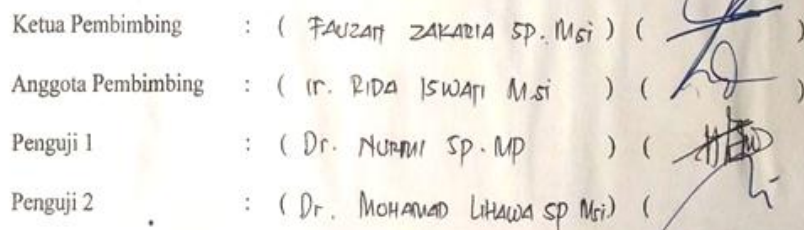 Ketua Pembimbing : ( FAUZAN ZAKARIA SP. Msi ) ( )
Anggota Pembimbing : ( Ir. RIDA ISWATI M.si ) ( )
Penguji 1 : ( Dr. NURMI SP. MP ) ( )
Penguji 2 : ( Dr. MOHAMAD LIHAWA SP Msi) (